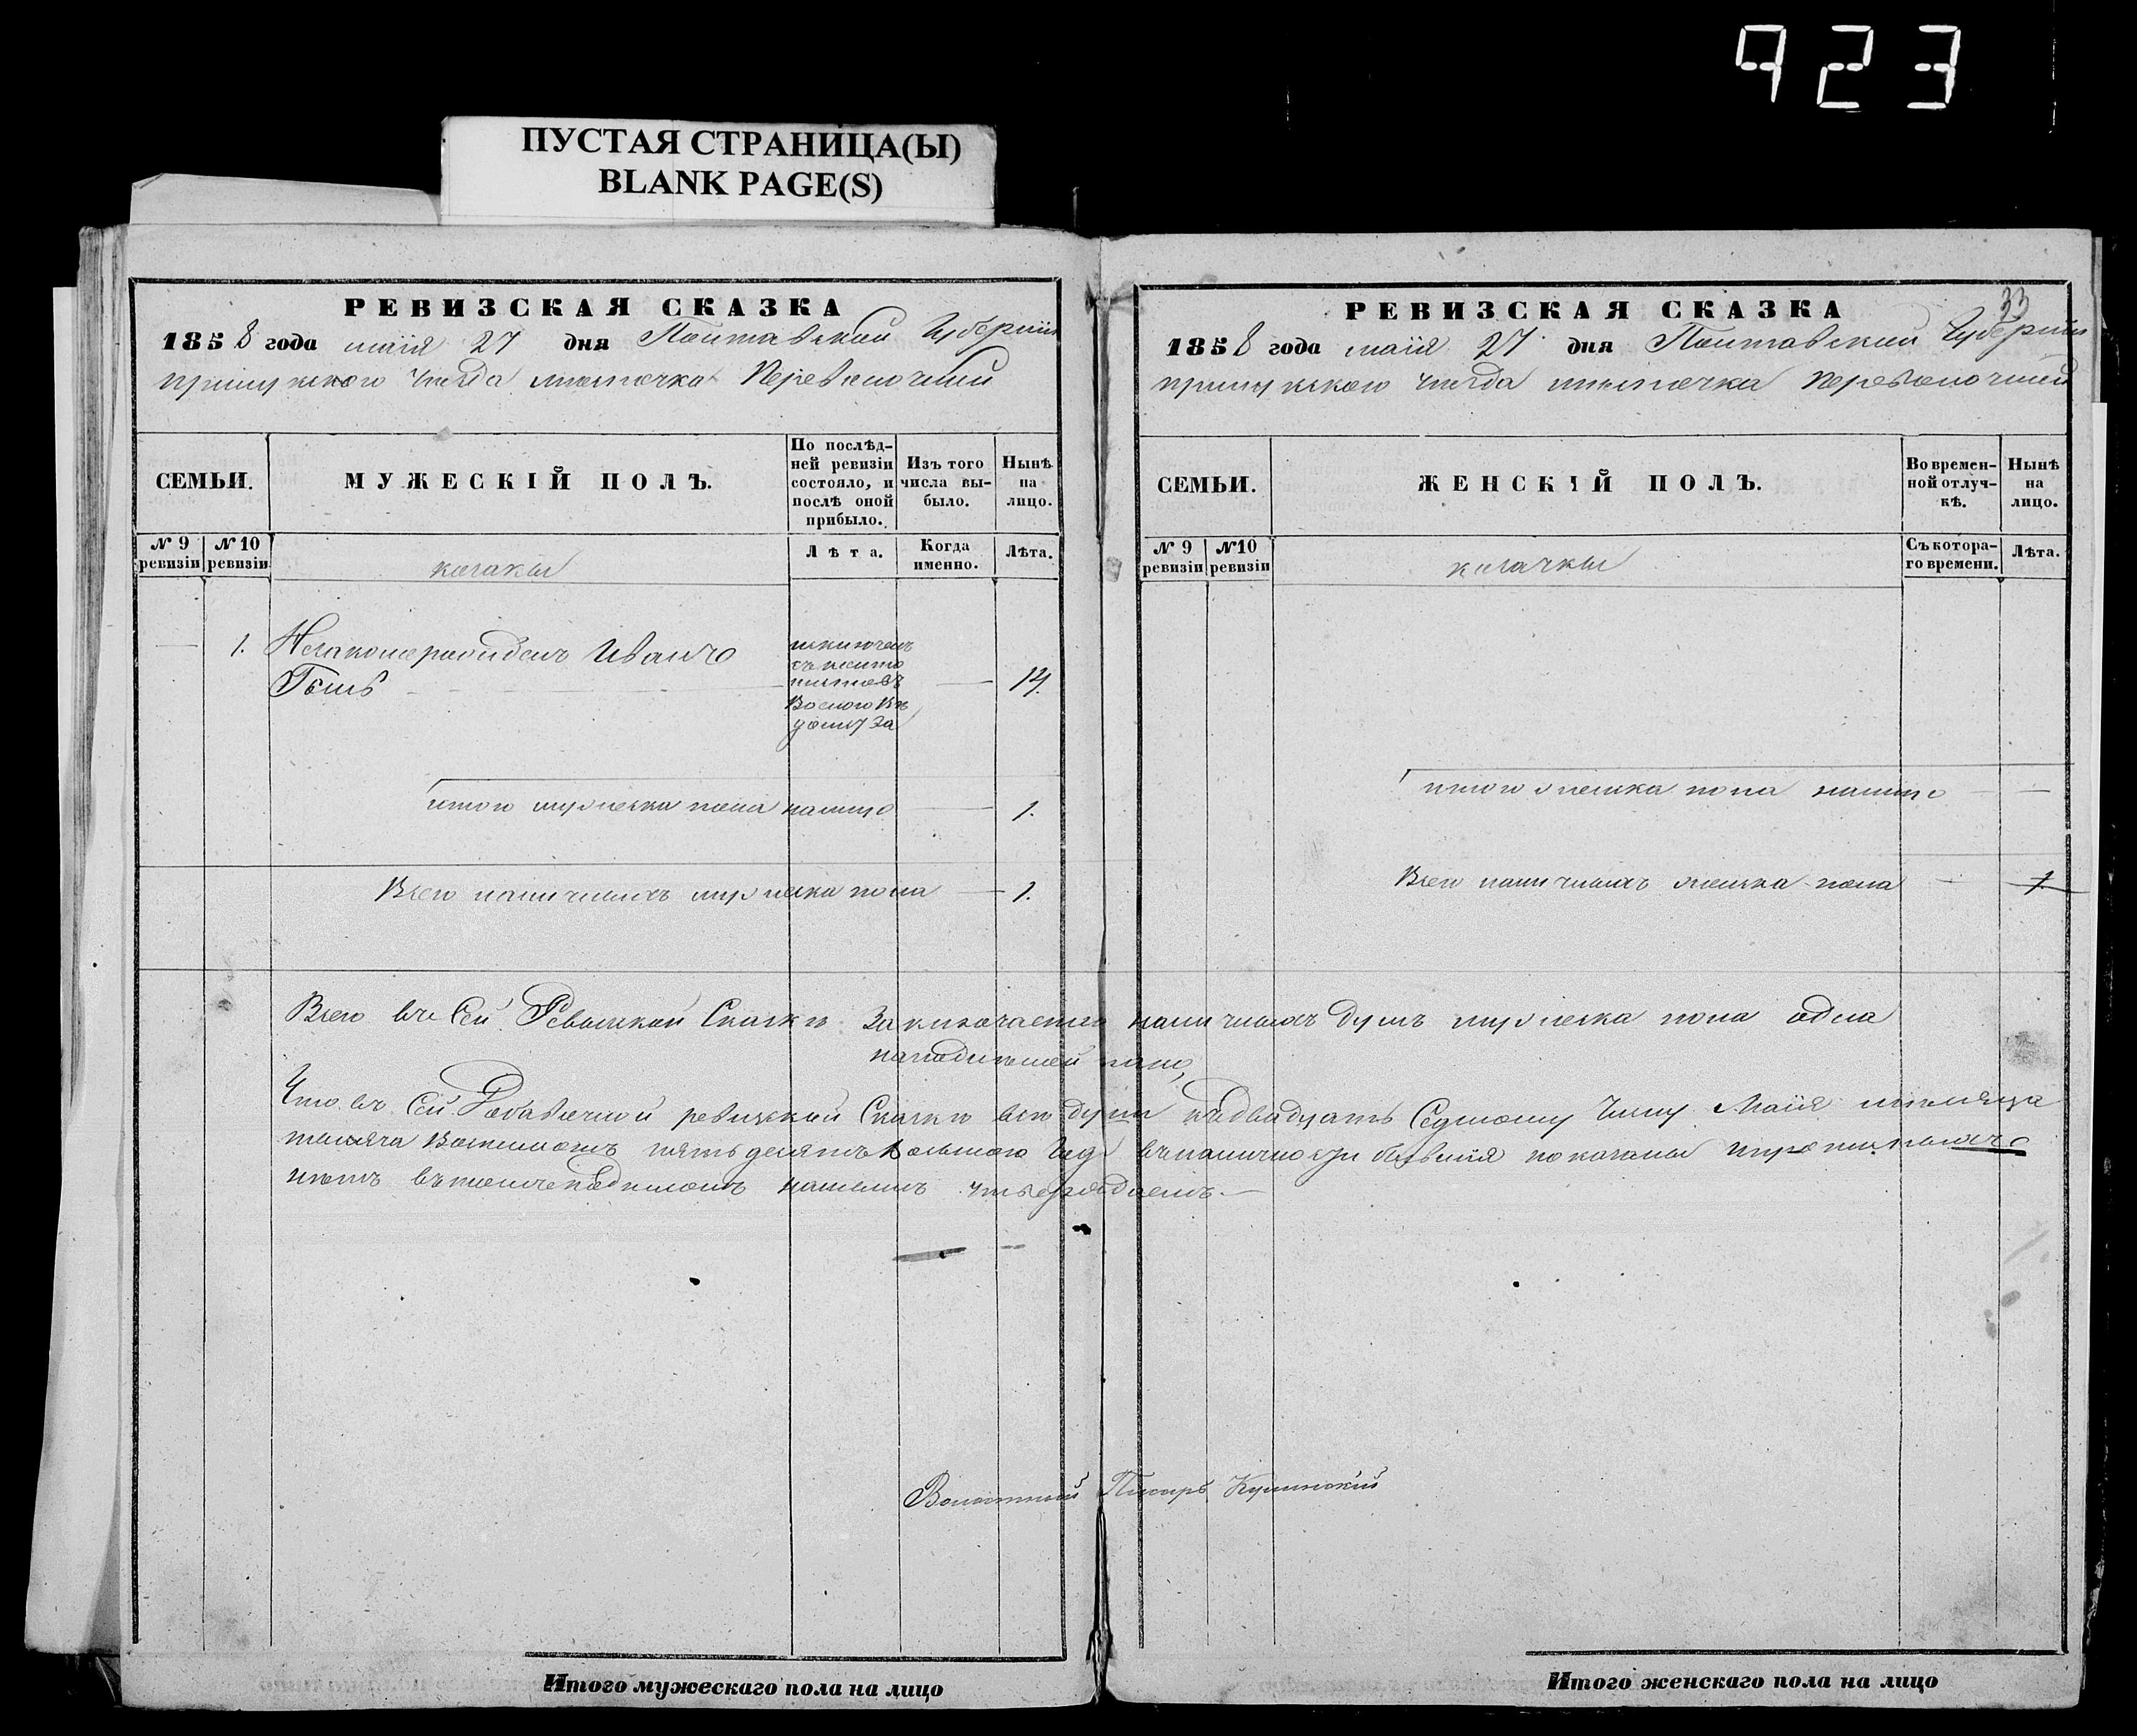 923
ПУСТАЯ СТРАНИЦА(Ы)
BLANK PAGE(S)
РЕВИЗСКАЯ СКАЗКА
1858 года маія 27 дня Полтавской Губерніи
прилукского уезда местечка Переволочной
СЕМЬИ.
МУЖЕСКІЙ ПОЛЪ.
По послѣд-
ней ревизіи
состояло, и
послѣ оной
прибыло.
Изъ того
числа вы-
было.
Нынѣ
на
лицо.
№ 9
ревизіи
№ 10
ревизіи
козаки
Лѣта.
Когда
именно.
Лѣта.
1. Незаконорожденъ Иванъ
14.
итого мужеска пола налицо 1.
Всего наличныхъ мужеска пола 1.
33
РЕВИЗСКАЯ СКАЗКА
1858 года маія 27 дня Полтавской Губерніи
прилукского уезда местечка Переволочной
СЕМЬИ.
ЖЕНСКІЙ ПОЛЪ.
Во времен-
ной отлуч-
кѣ.
Нынѣ
на
лицо.
№ 9
ревизіи
№10
ревизіи
козачки
Съ котора-
го времени.
Лѣта.
итого женска пола налицо
Всего наличныхъ женска пола 1
Всего въ Сей Ревизской Сказке Заключается наличныхъ душъ мужеска пола одна
Что въ Сей Добавочной ревизской Сказке все души къ двадцать Седмому Числу Маія месяца
тысяча восемсотъ пятьдесятъ восьмого года въ наличности бывшія показаны
утверждаемъ.
Волостный Писарь
Итого мужескаго пола на лицо
Итого женскаго пола на лицо